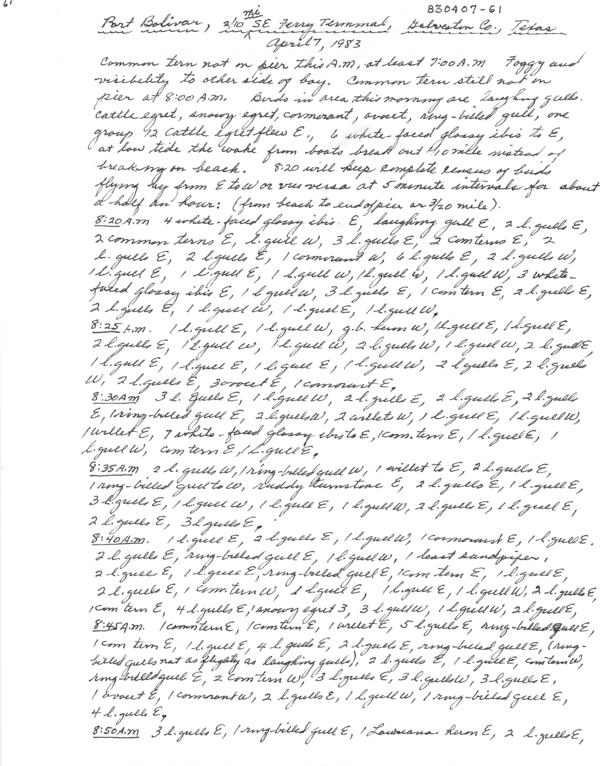 61
830407-61
Port Bolivar, 2/10 mi SE Ferry Terminal, Galveston Co., Texas
April 7, 1983
Common tern not on pier this A.M. at least 7:00 A.M. Foggy and
visibility to other side of bay. Common tern still not on
pier at 8:00 A.M. Birds in area this morning are laughing gulls.
Cattle egret, snowy egret, cormorant, avocet, ring-billed gull, one
group 12 cattle egret flew E., 6 white-faced glossy ibis to E,
at low tide the wake from boats break out 1/10 mile instead of
breaking on beach. 8:20 will keep complete census of birds
flying by from E to W or vice versa at 5 minute intervals for about
a half an hour: (from beach to end of pier or 3/20 mile).
8:20 A.M 4 white-faced glossy ibis E, laughing gull E, 2 l. gulls E,
2 common terns E, l. gull W, 3 l. gulls E, 2 com terns E, 2
l. gulls E, 2 l. gulls E, 1 cormorant W, 6 l. gulls E, 2 l. gulls W,
1 l. gull E, 1 l. gull E, 1 l. gull W, 1 l. gull W, 1 l. gull W, 3 white-
faced glossy ibis E, 1 l. gull W, 3 l. gulls E, 1 com tern E, 2 l. gulls E,
2 l. gulls E, 1 l. gull W, 1 l. gull E, 1 l. gull W.
8:25 A.M. 1 l. gull E, 1 l. gull W, g.b. heron W, 1 l. gull E, 1 l. gull E,
2 l. gulls E, 1 l. gull W, 1 l. gull W, 2 l. gulls W, 1 l. gull W, 2 l. gulls E,
1 l. gull E, 1 l. gull E, 1 l. gull E, 1 l. gull W, 2 l. gulls E, 2 l. gulls
W, 2 l. gulls E, 3 avocet E, 1 cormorant E.
8:30 AM 3 l. gulls E, 1 l. gull W, 2 l. gulls E, 2 l. gulls E, 2 l. gulls
E, 1 ring-billed gull E, 2 l. gulls W, 2 W, 1 l. gull E, 1 l. gull W,
1 willet E, 7 white-faced glossy ibis to E, 1 com. tern E, 1 l. gull E, 1
l. gull W, com tern E, 1 l. gull E.
8:35 A.M 2 l. gulls W, 1 ring-billed gull W, 1 willet to E, 2 l. gulls E,
1 ring-billed gull to W, ruddy turnstone E, 2 l. gulls E, 1 l. gull E,
3 l. gulls E, 1 l. gull W, 1 l. gull E, 1 l. gull W, 2 l. gulls E, 1 l. gull E,
2 l. gulls E, 3 l. gulls E.
8:40 A.M. 1 l. gull E, 2 l. gulls E, 1 l. gull W, 1 cormorant E, 1 l. gull E.
2 l. gulls E, ring-billed gull E, 1 l. gull W, 1 least sandpiper,
2 l. gull E, 1 l. gull E, ring-billed gull E, 1 com. tern E, 1 l. gull E,
2 l. gulls E, 1 com tern W, 1 l. gull E, 1 l. gull E, 1 l. gull W, 2 l. gulls E,
1 com tern E, 4 l. gulls E, 1 snowy egret 3, 3 l. gull W, 1 l. gull W, 2 l. gull E,
8:45 A.M. 1 com tern E, 1 com tern E, 1 willet E, 5 l. gulls E, ring-billed gull E,
1 com tern E, 1 l. gull E, 4 l. gulls E, 2 l. gulls E, ring-billed gull E, (ring-
billed gulls not as flighty as laughing gulls), 2 l. gulls E, 1 l. gull E, com tern W,
ring-billed gull E, 2 com tern W, 3 l. gulls E, 3 l. gulls W, 3 l. gulls E,
1 avocet E, 1 cormorant W, 2 l. gulls E, 1 l. gull W, 1 ring-billed gull E,
4 l. gulls E.
8:50 A.M 3 l. gulls E, 1 ring-billed gull E, 1 Louisiana heron E, 2 l. gulls E,